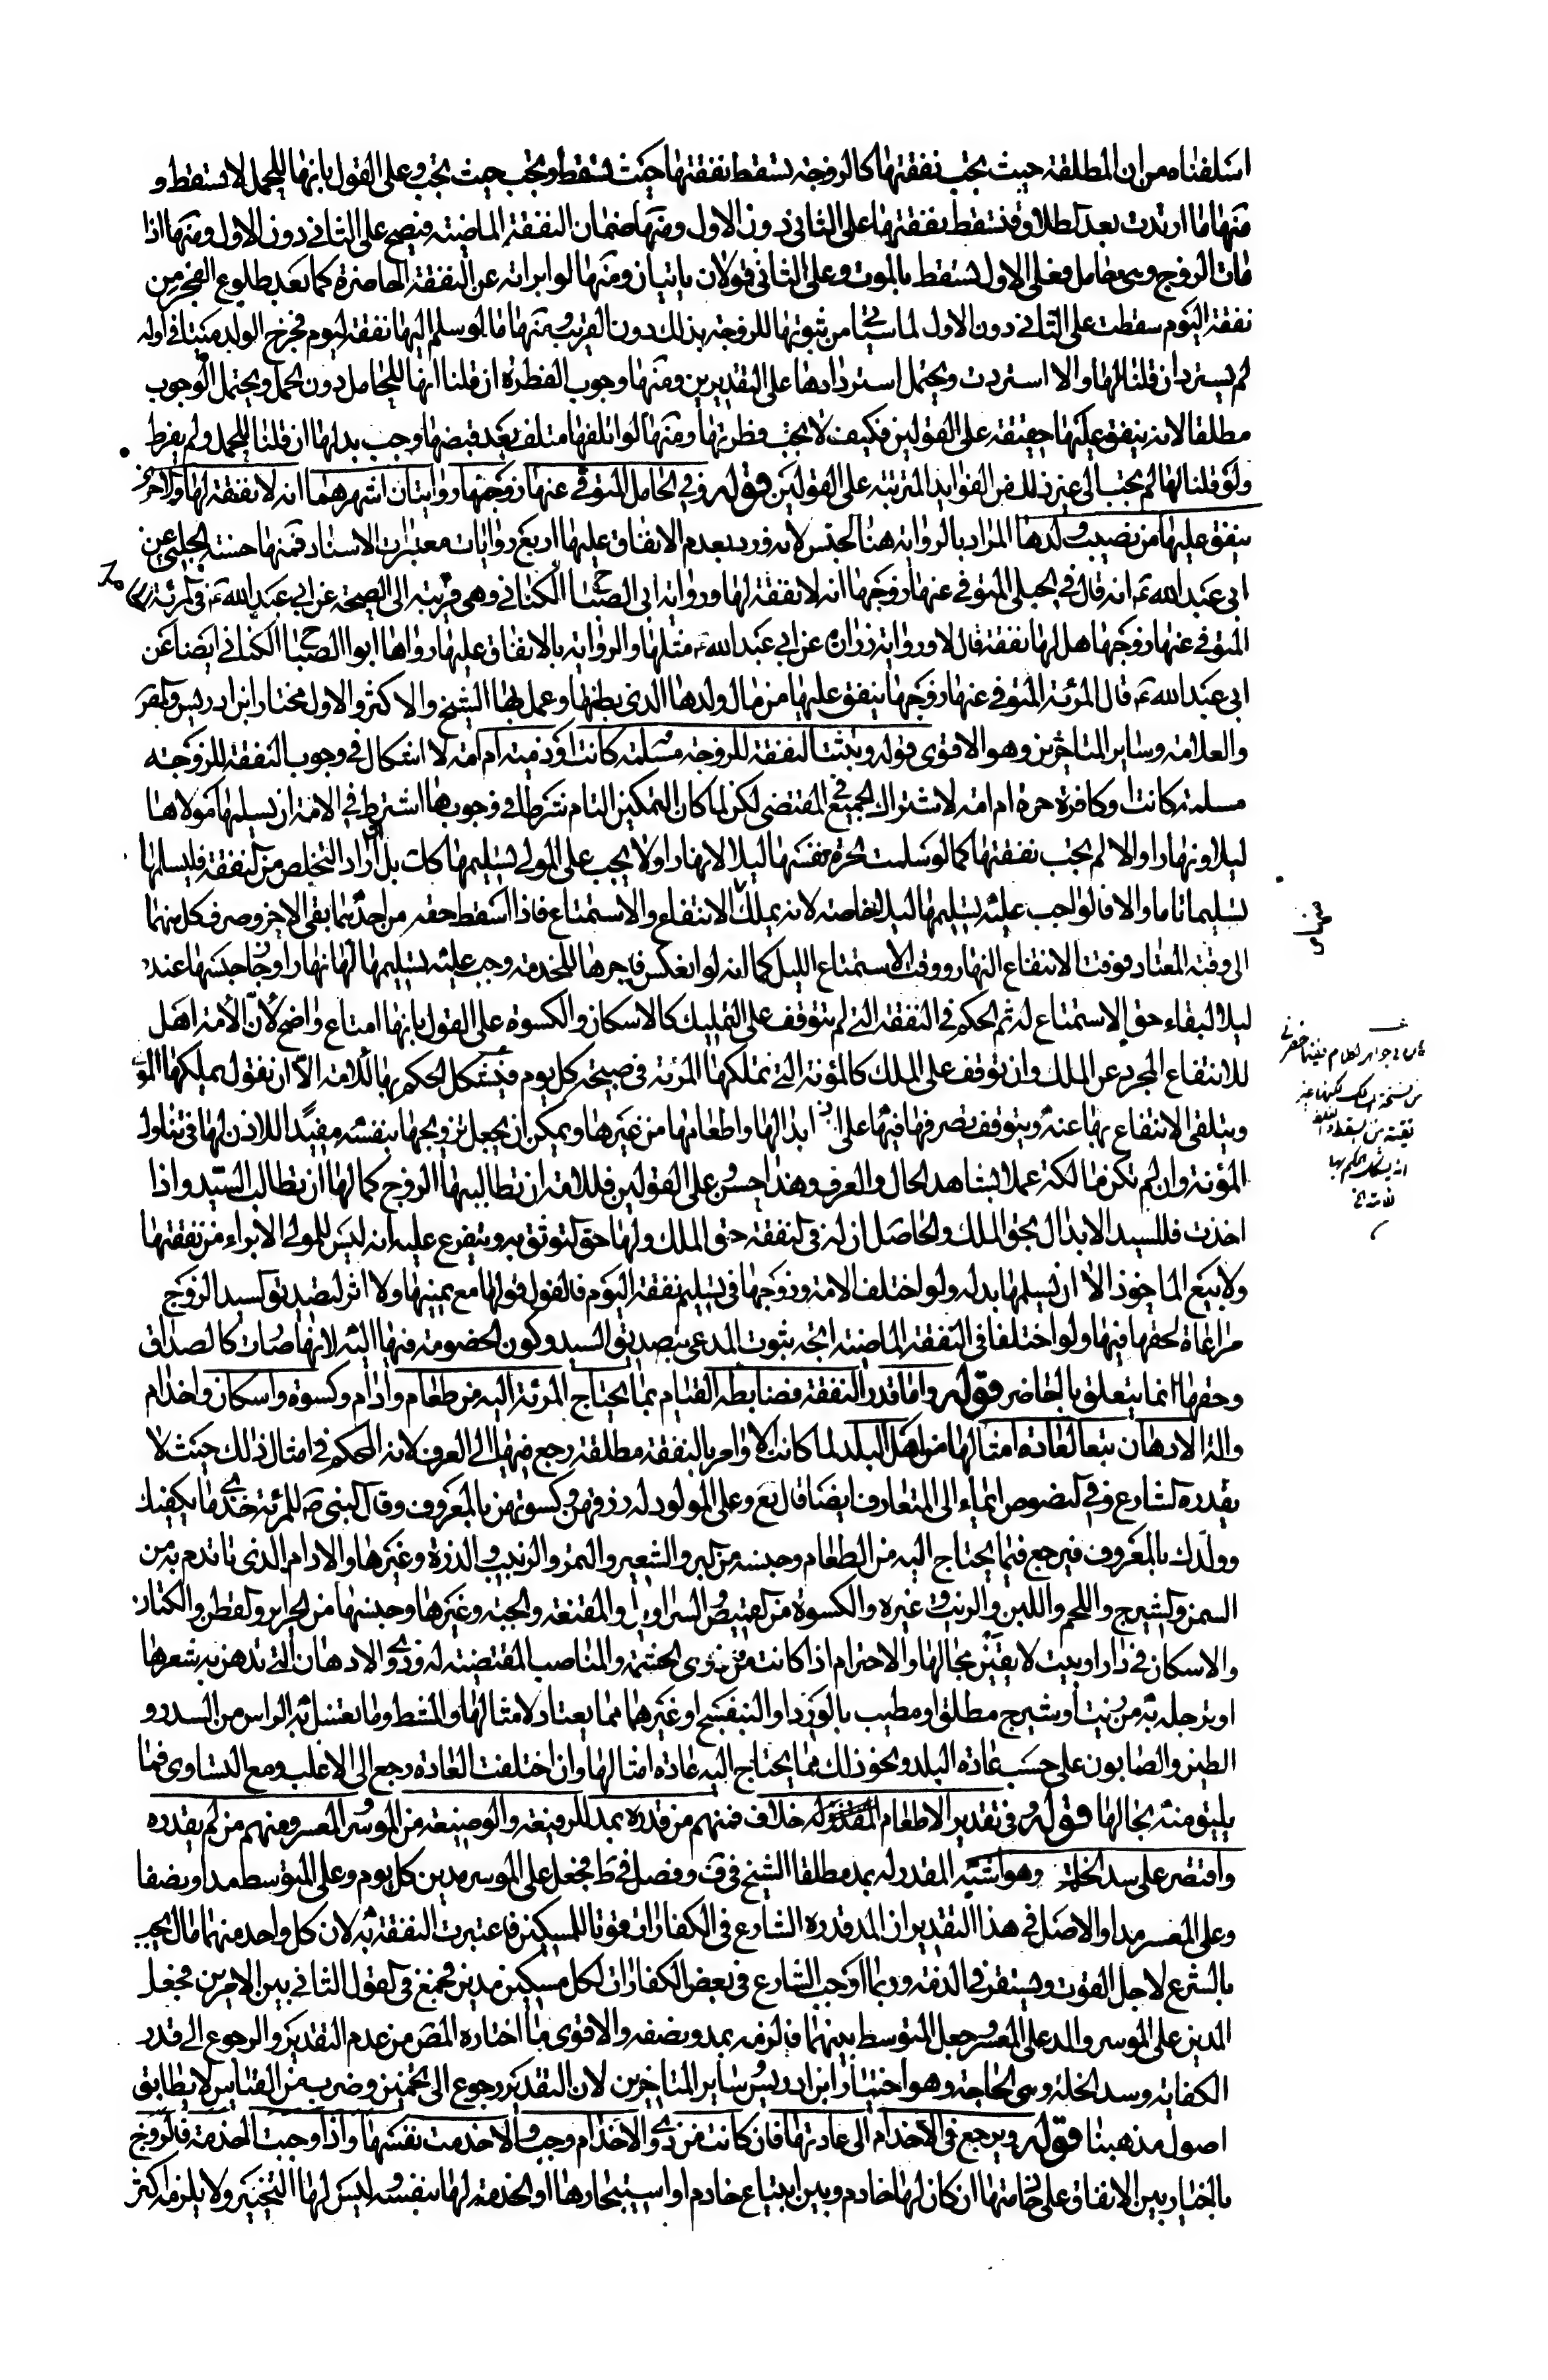 اسلفناه من ان المطلقة حيث يجب نفقتها كالزوجة تسقط نفقتها حيث تسقط وتجب حيث تجب وعلى القول بانها للحمل لا تسقط و
منها ما ارتدت بعد الطلاق فتسقط نفقتها على الثاني دون الاول ومنها ضمان النفقة الماضية فيصح على الثاني دون الاول ومنها اذا
مات الزوج وهي حامل فعلى الاول تسقط بالموت وعلى الثاني قولان ياتيان ومنها لو ابراته عن النفقة الحاضرة كما بعد طلوع الفجر من
نفقة اليوم سقطت على الثاني دون الاول لما سياتي من ثبوتها للزوجة بذلك دون القريب ومنها ما لو سلم اليها نفقة ليوم فخرج الولد ميتا في اوله
لم يسترد ان قلنا لها والا استردت ويحتمل استردادها على التقديرين ومنها وجوب الفطرة ان قلنا انها للحامل دون الحمل ويحتمل الوجوب
مطلقا لانه ينفق عليها حقيقة على القولين فكيف لا تجب فطرتها ومنها لو اتلفها متلف بعد قبضها وجب بدلها ان قلنا للحمل ولم يفرط
ولو قلنا لها لم يجب الى غير ذلك من الفوايد المترتبة على القولين قوله وفي الحامل المتوفى عنها زوجها روايتان اشهرهما انه لا نفقة لها والاخرى
ينفق عليها من نصيب ولدها المراد بالرواية هنا الجنس لانه ورد بعدم الانفاق عليها اربع روايات معتبرات الاسناد فمنها حسنة الحلبي عن
ابي عبد الله ع انه قال في الحبلى المتوفى عنها زوجها انه لا نفقة لها ورواية ابي الصباح الكناني وهي قريبة الى الصحة عن ابي عبد الله ع في المرئة الحامل
المتوفى عنها زوجها هل لها نفقة قال لا ورواية زرارة عن ابي عبد الله ع مثلها والرواية بالانفاق عليها رواها ابو الصباح الكناني ايضا عن
ابي عبد الله ع قال المرئة المتوفى عنها زوجها ينفق عليها من مال ولدها الذي بطنها وعمل بها الشيخ والاكثر والاول مختار ابن ادريس والمص
والعلامة وساير المتاخرين وهو الاقوى قوله ويثبت النفقة للزوجة مسلمة كانت او ذمية ام امة لا اشكال في وجوب النفقة للزوجة
مسلمة كانت او كافرة حرة ام امة لاشتراك الجميع في المقتضى لكن لما كان التمكين التام شرطا في وجوبها اشترط في الامة ان يسلمها مولاها
ليلا ونهارا والا لم يجب نفقتها كما لو سلمت الحرة نفسها ليلا لا نهارا ولا يجب على المولى تسليمها كك بل ان اراد التخلص من النفقة فليسلمها
تسليما تاما والا فالواجب عليه تسليمها ليلا خاصة لانه يملك الانتفاع والاستمتاع فاذا اسقط حقه من احدهما بقي الاخر وصرف كل منهما
الى وقته المعتاد فوقت الانتفاع النهار ووقت الاستمتاع الليل كما انه لو انعكس فاجرها للخدمة وجب عليه تسليمها لها نهارا وجاز حبسها عنده
ليلا لبقاء حق الاستمتاع له ثم الحكم في النفقة التي لم يتوقف على التمليك كالاسكان والكسوة على القول بانها امتاع واضح لان الامة اهل
للانتفاع المجرد عن الملك وان توقف على الملك كالمؤنة التي تملكها المرئة في صبيحة كل يوم فيشكل الحكم بها للامة الا ان نقول يملكها المولى
ويتلقى الانتفاع بها عنه ويتوقف تصرفها فيها على ابدالها واطعامها من غيرها ويمكن ان يجعل تزويجها بنفسه مفيدا للاذن لها في تناول
المؤنة وان لم تكن مالكة عملا بشاهد الحال والعرف وهذا حسن على القولين فللامة ان تطالب بها الزوج كما لها ان تطالب السيد واذا
اخذت فللسيد الابدال بحق الملك والحاصل ان له في النفقة حق الملك ولها حق التوثق به ويتفرع عليه انه ليس للمولى الابراء من نفقتها
ولا بيع الماخوذ الا ان يسلمها بدله ولو اختلف الامة وزوجها في تسليم نفقة اليوم فالقول قولها مع يمينها ولا اثر لتصديق السيد الزوج
مراعاة لحقها فيها ولو اختلفا في النفقة الماضية اتجه ثبوت المدعى بتصديق السيد وكون الخصومة فيها اليه لانها صارت كالصداق
وحقها انما يتعلق بالحاضر قوله واما قدر النفقة فضابطه القيام بما يحتاج المرئة اليه من طعام وادام وكسوة واسكان واخدام
والة الادهان تبعا لعادة امثالها من اهل البلد لما كانت الاوامر بالنفقة مطلقة رجع فيها الى العرف لانه المحكم في امثال ذلك حيث لا
يقدره الشارع وفي النصوص ايماء الى المتعارف ايضا قال تع وعلى المولود له رزقهن وكسوتهن بالمعروف وقال النبي ص للمرئة خذي ما يكفيك
وولدك بالمعروف فيرجع فيما يحتاج اليه من الطعام وجنسه من البر والشعير والتمر والزبيب والذرة وغيرها والادام الذي تاتدم به من
السمن والشيرج واللحم واللبن والزيت وغيره والكسوة من القميص والسراويل والمقنعة والجبة وغيرها وجنسها من الحرير والقطن والكتان
والاسكان في دار او بيت لايقين بحالها والاحترام اذا كانت من ذوي الحشمة والمناصب المقتضية له وذي والادهان التي تدهن به شعرها
او ترجله به من زيت او شيرج مطلق او مطيب بالورد او البنفسج او غيرهما مما يعتاد لامثالها والمشط وما يغتسل به الراس من السدر و
الطين والصابون على حسب عادة البلد ونحو ذلك مما يحتاج اليه عادة امثالها وان اختلفت العادة رجع الى الاغلب ومع التساوي فما
يليق منه بحالها قوله وفي تقدير الاطعام خلاف فمنهم من قدره بمد للرفيعة والوضيعة من الموسر والمعسر ومنهم من لم يقدره
واقتصر على سد الخلة وهو اشبه المقدر له بمد مطلقا الشيخ في ف وفصل في ط فجعل على الموسر مدين كل يوم وعلى المتوسط مدا ونصفا
وعلى المعسر مدا والاصل في هذا التقدير ان المد قدره الشارع في الكفارات قوتا للمسكين فاعتبرت النفقة به لان كل واحد منهما مال يجب
بالشرع لاجل القوت ويستقر في الذمة وربما اوجب الشارع في بعض الكفارات لكل مسكين مدين فجمع في القول الثاني بين الامرين فجعل
المدين على الموسر والمد على المعسر وجعل المتوسط بينهما فالزمه بمد ونصفه والاقوى ما اختاره المص من عدم التقدير والرجوع الى قدر
الكفاية وسد الخلة وهي الحاجة وهو اختيار ابن ادريس وساير المتاخرين لان التقدير رجوع الى تخمين وضرب من القياس لا يطابق
اصول مذهبنا قوله ويرجع في الاخدام الى عادتها فان كانت من ذوي الاخدام وجب والا خدمت نفسها واذا وجبت الخدمة فالزوج
بالخيار بين الانفاق على خادمتها ان كان لها خادم وبين ابتياع خادم او استيجارها او الخدمة لها بنفسه وليس لها التخيير ولا يلزمه اكثر